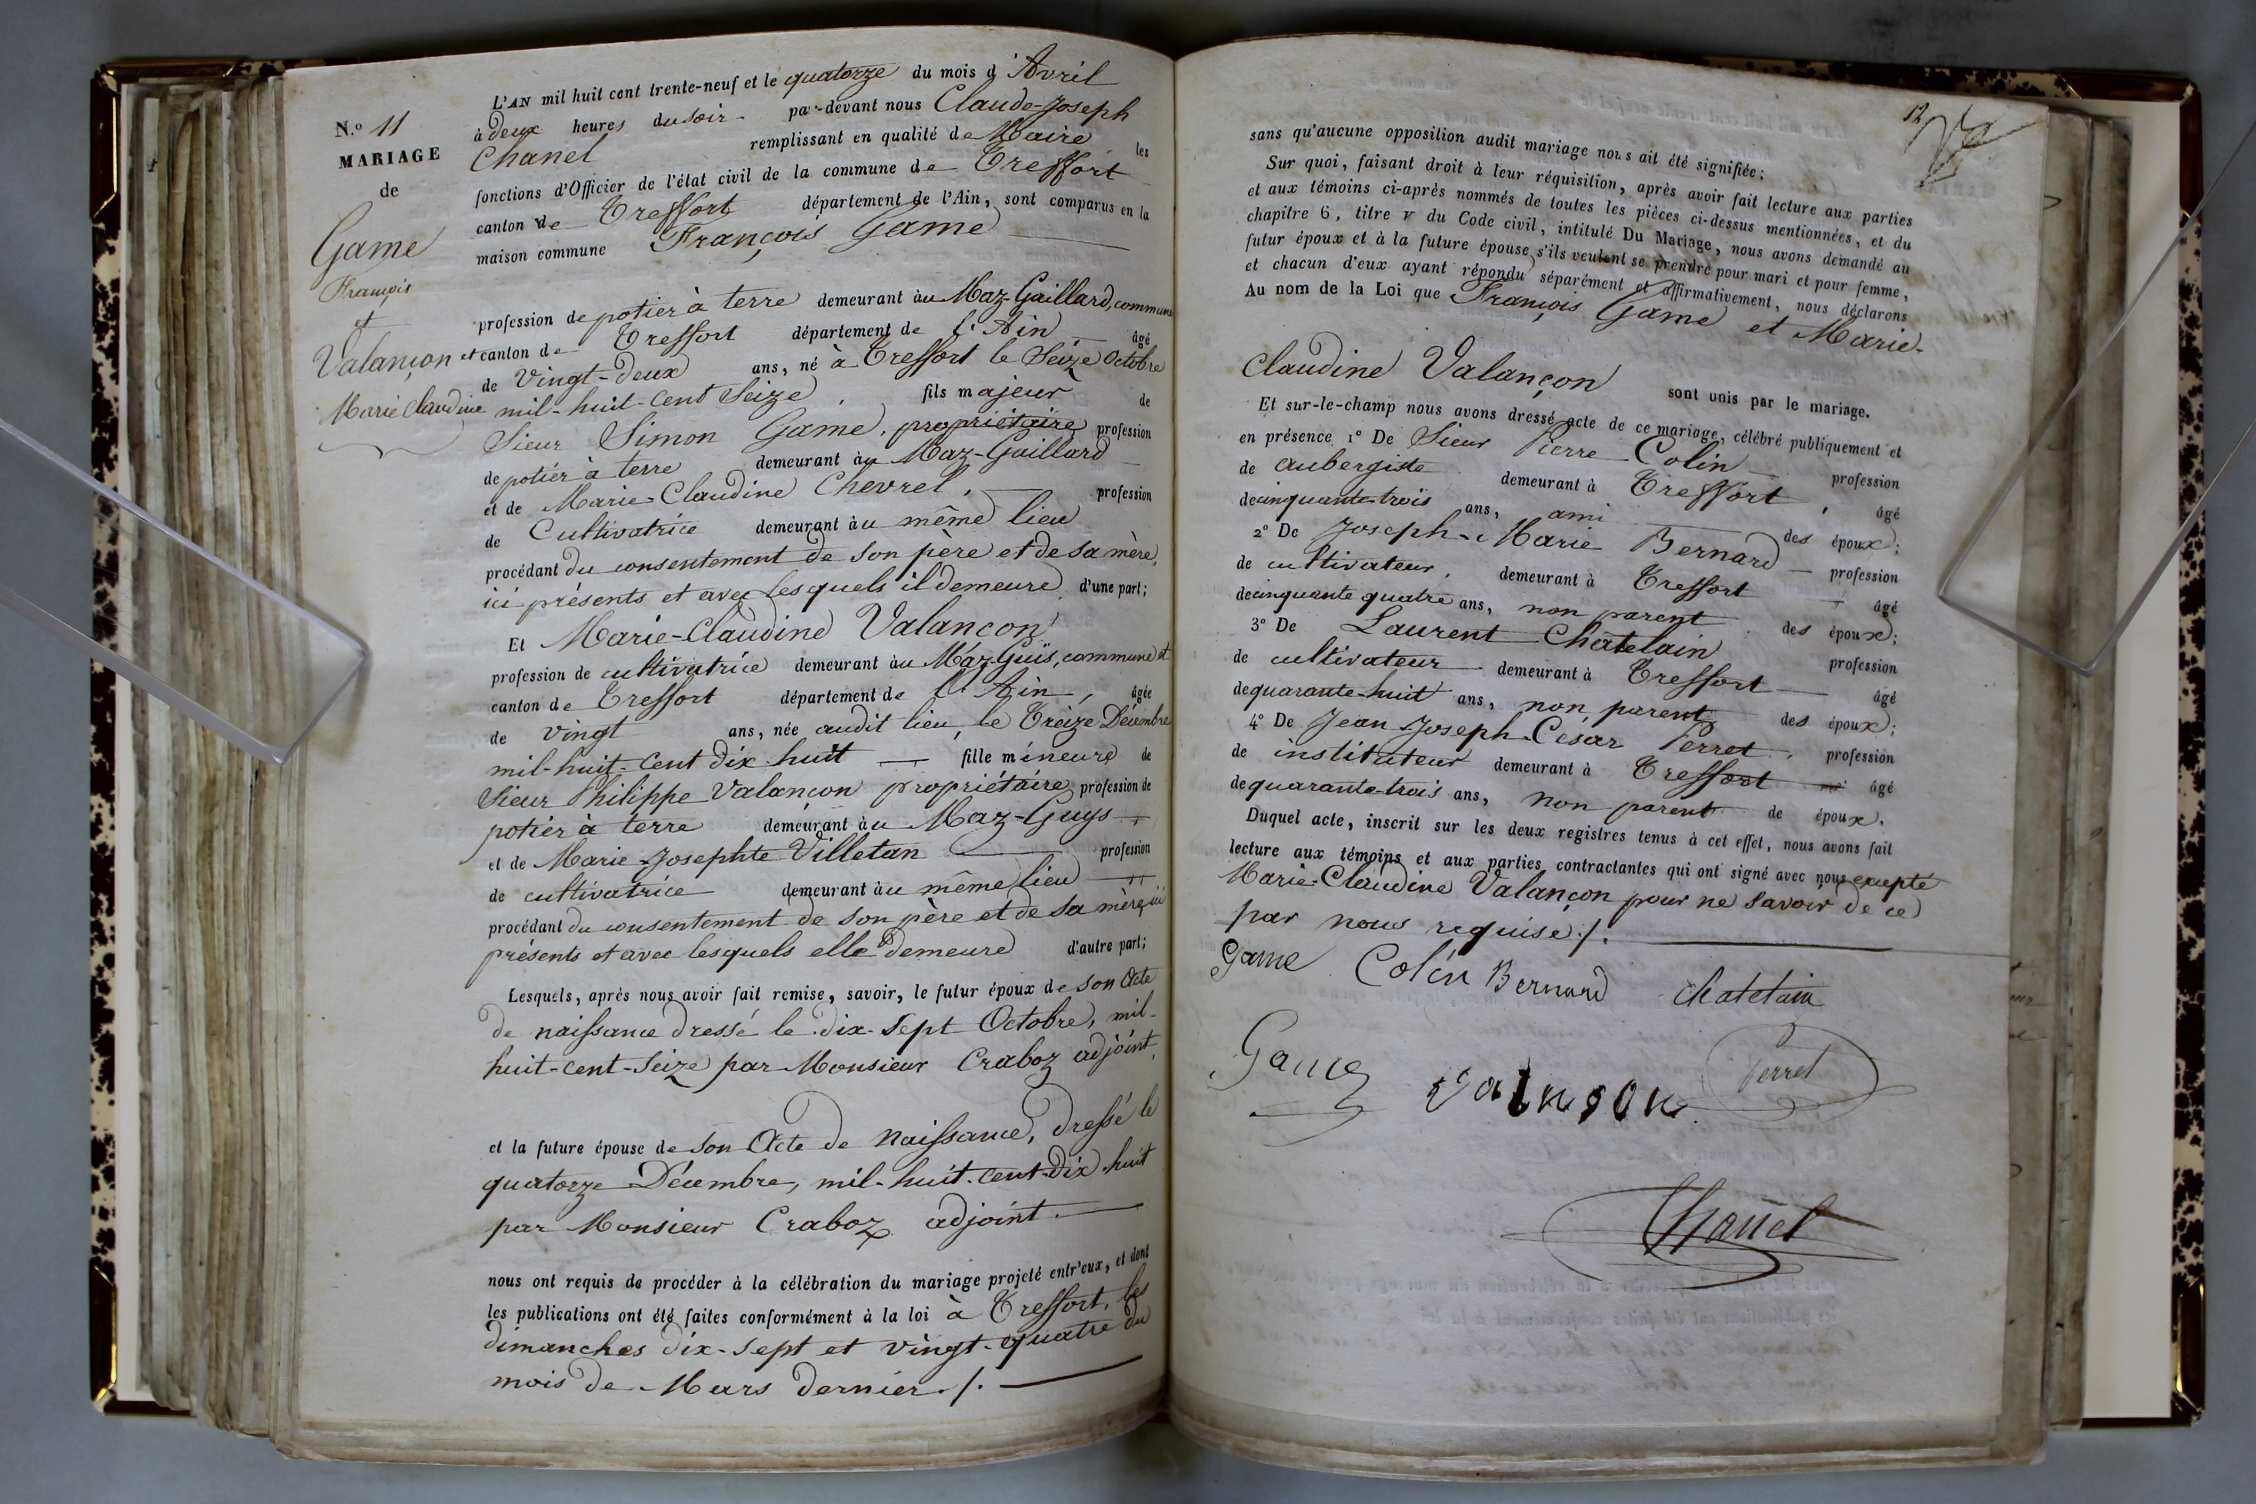 N.º 11
MARIAGE
de
Game
François
et
Valançon
Marie Claudine
L'AN mil huit cent trente-neuf et le quatorze du mois d'Avril
à deux heures du soir par-devant nous Claude-Joseph
Chanel remplissant en qualité de Maire les
fonctions d'Officier de l'état civil de la commune de Treffort
canton de Treffort département de l'Ain, sont comparus en la
maison commune François Game
profession de potier à terre demeurant au Maz-Gaillard, commune
et canton de Treffort département de l'Ain âgé
de Vingt-deux ans, né à Treffort le Seize Octobre
mil-huit-cent Seize, fils majeur de
Sieur Simon Game, propriétaire profession
de potier à terre demeurant au Maz-Gaillard
et de Marie-Claudine Chevrel, profession
de Cultivatrice demeurant au même lieu
procédant du consentement de son père et de sa mère,
ici présents et avec lesquels il demeure d'une part;
Et Marie-Claudine Valançon
profession de cultivatrice demeurant au Maz-Guïs, commune et
canton de Treffort département de l'Ain, âgée
de vingt ans, née audit lieu, le Treize Décembre
mil-huit-cent dix-huit fille mineure de
Sieur Philippe Valançon propriétaire profession de
potier à terre demeurant au Maz-Guys
et de Marie-Josephte Villetan profession
de cultivatrice demeurant au même lieu
procédant du consentement de son père et de sa mère, ici
présents et avec lesquels elle demeure d'autre part;
Lesquels, après nous avoir fait remise, savoir, le futur époux de son Acte
de naissance dressé le dix-sept Octobre, mil-
huit-cent-seize par Monsieur Craboz adjoint,
et la future épouse de son Acte de Naissance, dressé le
quatorze Décembre, mil-huit-cent-dix-huit
par Monsieur Craboz adjoint.
nous ont requis de procéder à la célébration du mariage projeté entr'eux, et dont
les publications ont été faites conformément à la loi à Treffort, les
dimanches dix-sept et vingt-quatre du
mois de Mars dernier./.
12
sans qu'aucune opposition audit mariage nous ait été signifiée;
Sur quoi, faisant droit à leur réquisition, après avoir fait lecture aux parties
et aux témoins ci-après nommés de toutes les pièces ci-dessus mentionnées, et du
chapitre 6, titre V du Code civil, intitulé Du Mariage, nous avons demandé au
futur époux et à la future épouse s'ils veulent se prendre pour mari et pour femme,
et chacun d'eux ayant répondu séparément et affirmativement, nous déclarons
Au nom de la Loi que François Game et Marie-
Claudine Valançon sont unis par le mariage.
Et sur-le-champ nous avons dressé acte de ce mariage, célébré publiquement et
en présence 1º De Sieur Pierre Colin profession
de aubergiste demeurant à Treffort, âgé
de cinquante-trois ans, ami des époux;
2º De Joseph-Marie Bernard profession
de cultivateur, demeurant à Treffort âgé
de cinquante quatre ans, non parent des époux;
3º De Laurent Chatelain profession
de cultivateur demeurant à Treffort âgé
de quarante-huit ans, non parent des époux;
4º De Jean Joseph César Perret, profession
de instituteur demeurant à Treffort âgé
de quarante-trois ans, non parent de époux.
Duquel acte, inscrit sur les deux registres tenus à cet effet, nous avons fait
lecture aux témoins et aux parties contractantes qui ont signé avec nous excepté
Marie-Claudine Valançon pour ne savoir de ce
par nous requise./.
Game Colin Bernard Chatelain
Game Valnson Perret
Chanel